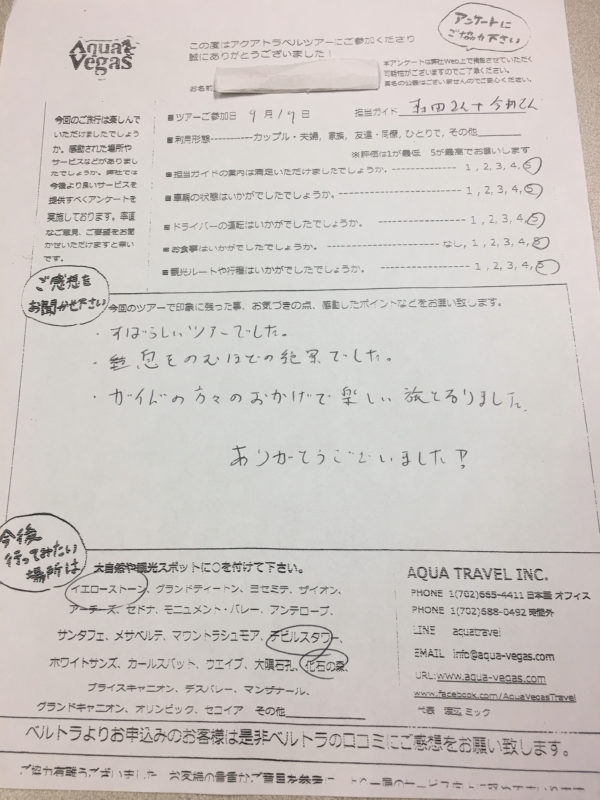 Aqua Vegas
この度はアクアトラベルツアーにご参加くださり
誠にありがとうございました！
アンケートに
ご協力下さい
お名前
本アンケートは弊社Web上で掲載させていただく
可能性がございますのでご了承ください。
実名の公表はございませんのでご安心ください。
今回のご旅行は楽しんで
いただけましたでしょう
か。感動された場所や
サービスなどがありまし
たでしょうか。弊社では
今後より良いサービスを
提供すべくアンケートを
実施しております。率直
なご意見、ご要望をお聞
かせいただけますと幸い
です。
■ツアーご参加日 9月17日 担当ガイド
■利用形態-----------カップル・夫婦, 家族, 友達・同僚, ひとりで, その他
※評価は1が最低 5が最高でお願いします
■担当ガイドの案内は満足いただけましたでしょうか。 ------------------ 1 , 2, 3, 4, 5
■車輌の状態はいかがでしたでしょうか。 ------------------ 1 , 2, 3, 4, 5
■ドライバーの運転はいかがでしたでしょうか。 ------------------ 1 , 2, 3, 4, 5
■お食事はいかがでしたでしょうか。 ------------------ なし, 1, 2, 3, 4, 5
■観光ルートや行程はいかがでしたでしょうか。 ---------------- 1 , 2, 3, 4, 5
ご感想を
お聞かせ下さい
今回のツアーで印象に残った事、お気づきの点、感動したポイントなどをお願い致します。
・すばらしいツアーでした。
・息をのむほどの絶景でした。
・ガイドの方々のおかげで楽しい旅となりました。
ありがとうございました!
今後
行ってみたい
場所は
大自然や観光スポットに○を付けて下さい。
イエローストーン、グランドティートン、ヨセミテ、ザイオン、
アーチーズ、セドナ、モニュメント・バレー、アンテロープ、
サンタフェ、メサベルデ、マウントラシュモア、デビルスタワー、
ホワイトサンズ、カールスバット、ウエイブ、大隕石孔、化石の森、
ブライスキャニオン、デスバレー、マンザナール、
グランドキャニオン、オリンピック、セコイア その他
AQUA TRAVEL INC.
PHONE 1(702)665-4411 日本語 オフィス
PHONE 1(702)688-0492 時間外
LINE aquatravel
EMAIL info@aqua-vegas.com
URL: www.aqua-vegas.com
www.facebook.com/AquaVegasTravel
代表 渡辺 ミック
ベルトラよりお申込みのお客様は是非ベルトラの口コミにご感想をお願い致します。
ご協力有難うございました